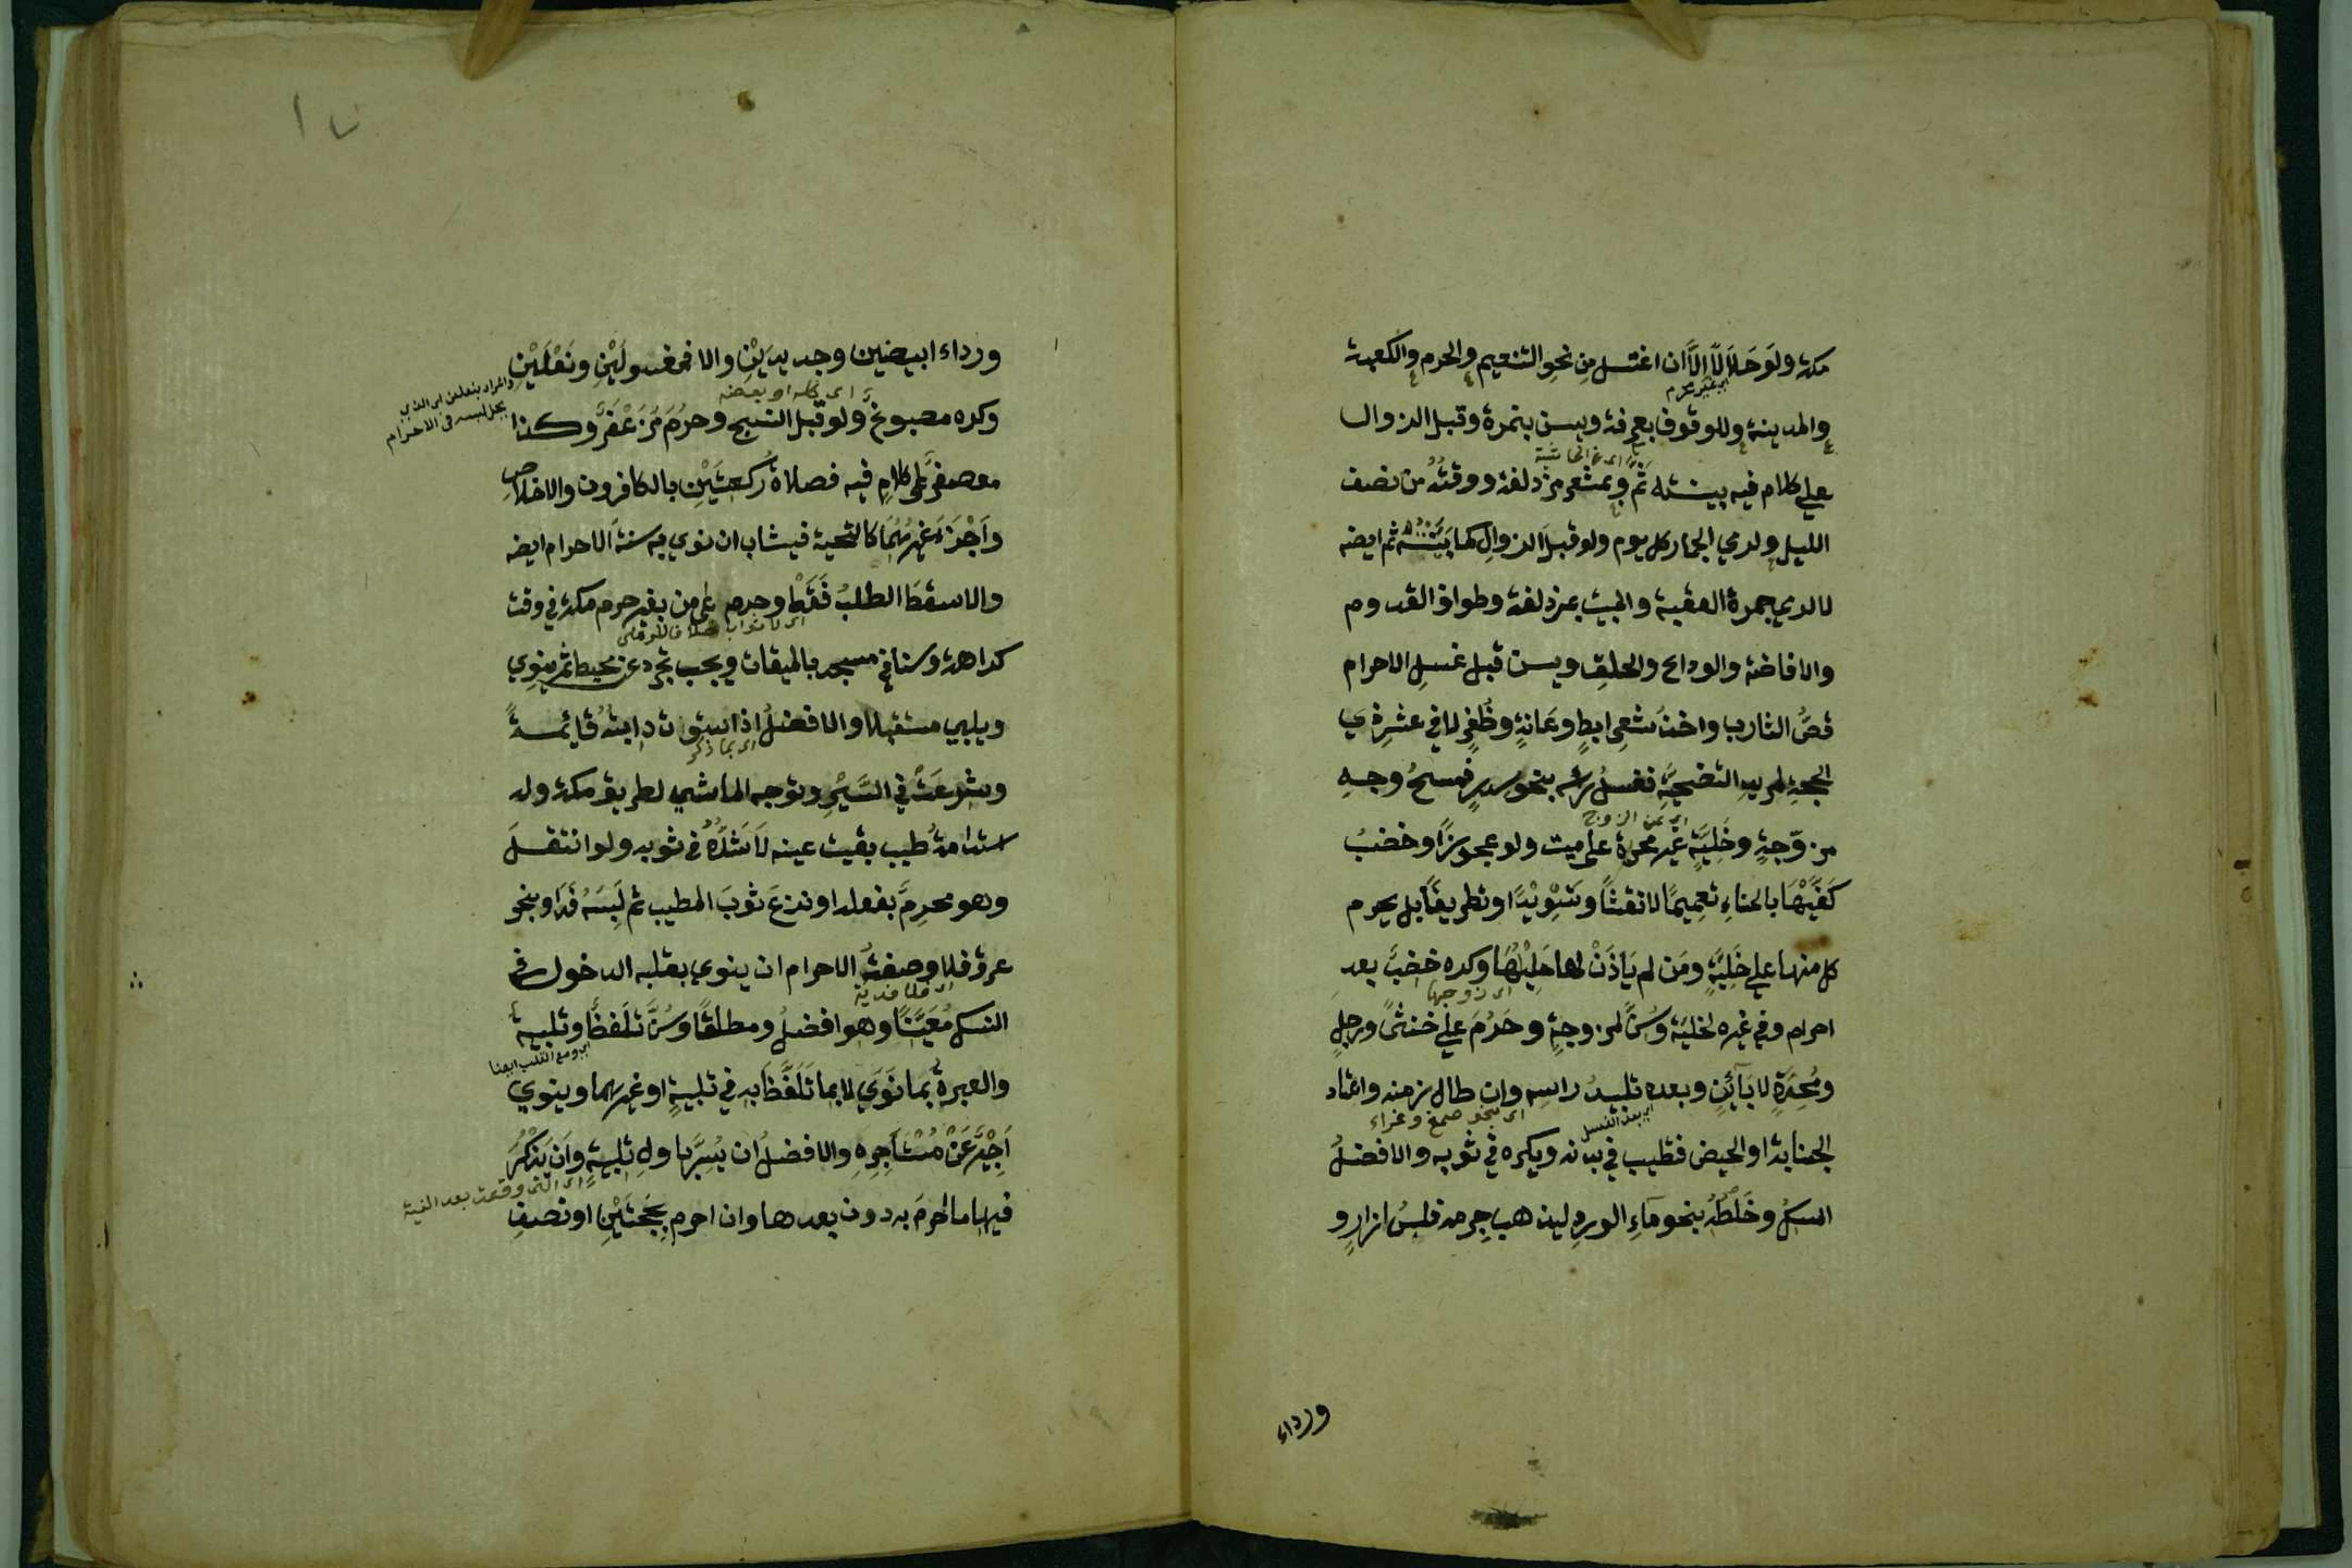 مكة ولَوحَلاَلاً الاَّ ان اغتسل مِن نحوِ التنعيم والحرم والكعبة
اي غير محرم
والمدينة وللوقوف بعرفة ويسن بنمرة وقبل الزوال
على كلام فيه بينته ثَم وبمشعر مزدلفة ووقتُهُ من نصف
الليل ولرمي الجمار كل يوم ولو قبلَ الزوالِ كما بَيَّنْتُهُ ثم ايضه
لا لرمي جمرة العقبة والمبيت بمزدلفة وطواف القدوم
والافاضة والوداع والحلقِ ويسن قبل غسلِ الاحرام
قصُّ الشارب واخذُ شعرِ ابطٍ وعَانةٍ وظُفرٍ لا في عشرِ ذي
الحجةِ لمريد التضحيَّةِ فغسلُ رأسه بنحو سدرٍ فمسحُ وجهِ
اي من الزوج
مزوّجةٍ وخَليَّةٍ غير محدة على ميت ولو عجوزًا وخضبُ
كَفَّيْهَا بالحناءِ تعميمًا لا نقشًا وتَسْوِيْدًا وتطريفًا بل يحرم
كل منها على خَلِيَّةٍ ومَن لم يَأذَنْ لها حَلِيْلُهَا وكره خضبٌ بعد
اي زوجها
احرام وفي غيره لخليَّة وسُنَّ لمزوجةٍ وحَرُمَ على خنثىً ورجلٍ
ومُحِدَّةٍ لا بَآئنٍ وبعده تلبيدُ راسِه وان طال زمنه واعتاد
اي بنحو صمغ وغراء
اي بعد الغسل
الجنابة او الحيض فتطيب في بدنه ويكره في ثوبه والافضلُ
المسكُ وخَلْطُهُ بنحو مآءِ الوردِ ليذهب جِرمه فلبسُ ازارٍ و
ورداء
ورداء ابيضين وجديدَيْنِ والا فمغسولَيْنِ ونَعْلَيْنِ
والمراد بنعلين اي الذي
يحل لبسه في الاحرام
اي كله او بعضه
وكره مصبوغٌ ولو قبل النسج وحرُمَ مُزَعْفَرٌ وكذا
معصفرٌ على كلامٍ فيه فصلاةُ رُكعتَيْنِ بالكافرون والاخلاصِ
واَجْزَءَ غيرُهُمَا كالتحية فيثاب ان نوي به سنةَ الاحرام ايضه
والا سقطَ الطلبُ فَقَطْ وحرم على من بغير حرم مكة في وقت
كراهة وسنا في مسجد بالميقات ويجب تجرد عن محيط ثم ينوِي
ويلبي مستقبلا والافضلُ اذا استوت دابتهُ قائمةً
اي بما ذكر
وشرعَتْ في السَّيْرِ وتوجه الماشي لطريق مكة وله
استدامةُ طيب بقيت عينه لا شَدُّهُ في ثوبه ولو انتقلَ
وهو محرِمٌ بفعله او نزعَ ثوبَ المطيب ثم لَبِسَهُ فَدَا وبنحو
عرق فلا وصفةُ الاحرام ان ينوي بقلبه الدخول في
اي فلا فدية
النسك مُعَيَّنًا وهو افضلُ ومطلقًا وسُنَّ تَلَفظٌ وتلبيةٌ
اي ومع القلب ايضا
والعبرةُ بمَا نَوَي لا بما تَلَفَّظَ به في تلبيةٍ او غيرهما وينوي
اَجِيْرٌ عَنْ مُسْتَاجِرِهِ والافضلُ ان يُسِرَّ باوله تلبيةٍ واَن يَذكُرَ
اي التي وقعت بعد النية
فيها ما احرمَ به دون بعدها وان احرم بِحَجَّتَيْنِ او نصفِ